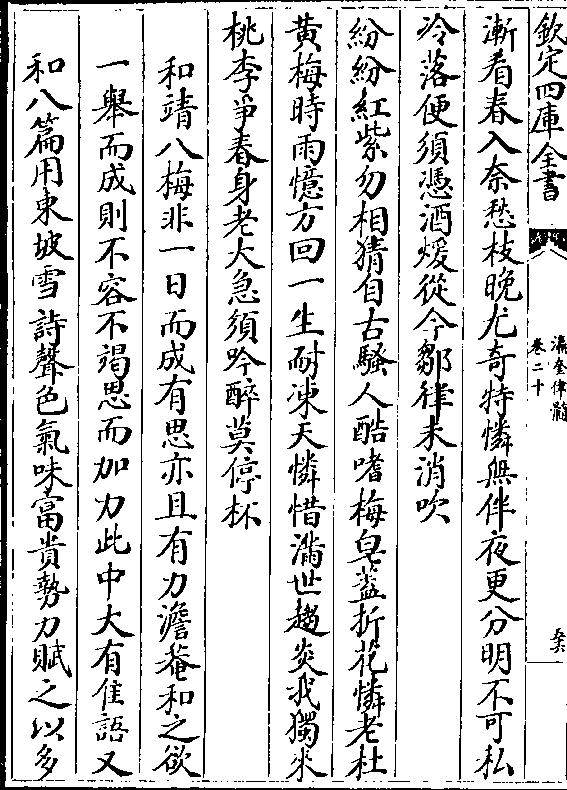 欽定四庫全書
瀛奎律髓
卷二十
漸看春入奈愁枝晚尤奇特憐無伴夜更分明不可私
冷落便須憑酒煖從今鄒律未消吹
紛紛紅紫勿相猜自古騷人酷嗜梅皂蓋折花憐老杜
黄梅時雨憶方回一生耐凍天憐惜滿世趨炎我獨來
桃李爭春身老大急須吟醉莫停杯
和靖八梅非一日而成有思亦且有力澹菴和之欲
一舉而成則不容不竭思而加力此中大有佳語又
和八篇用東坡雪詩聲色氣味富貴勢力賦之以多